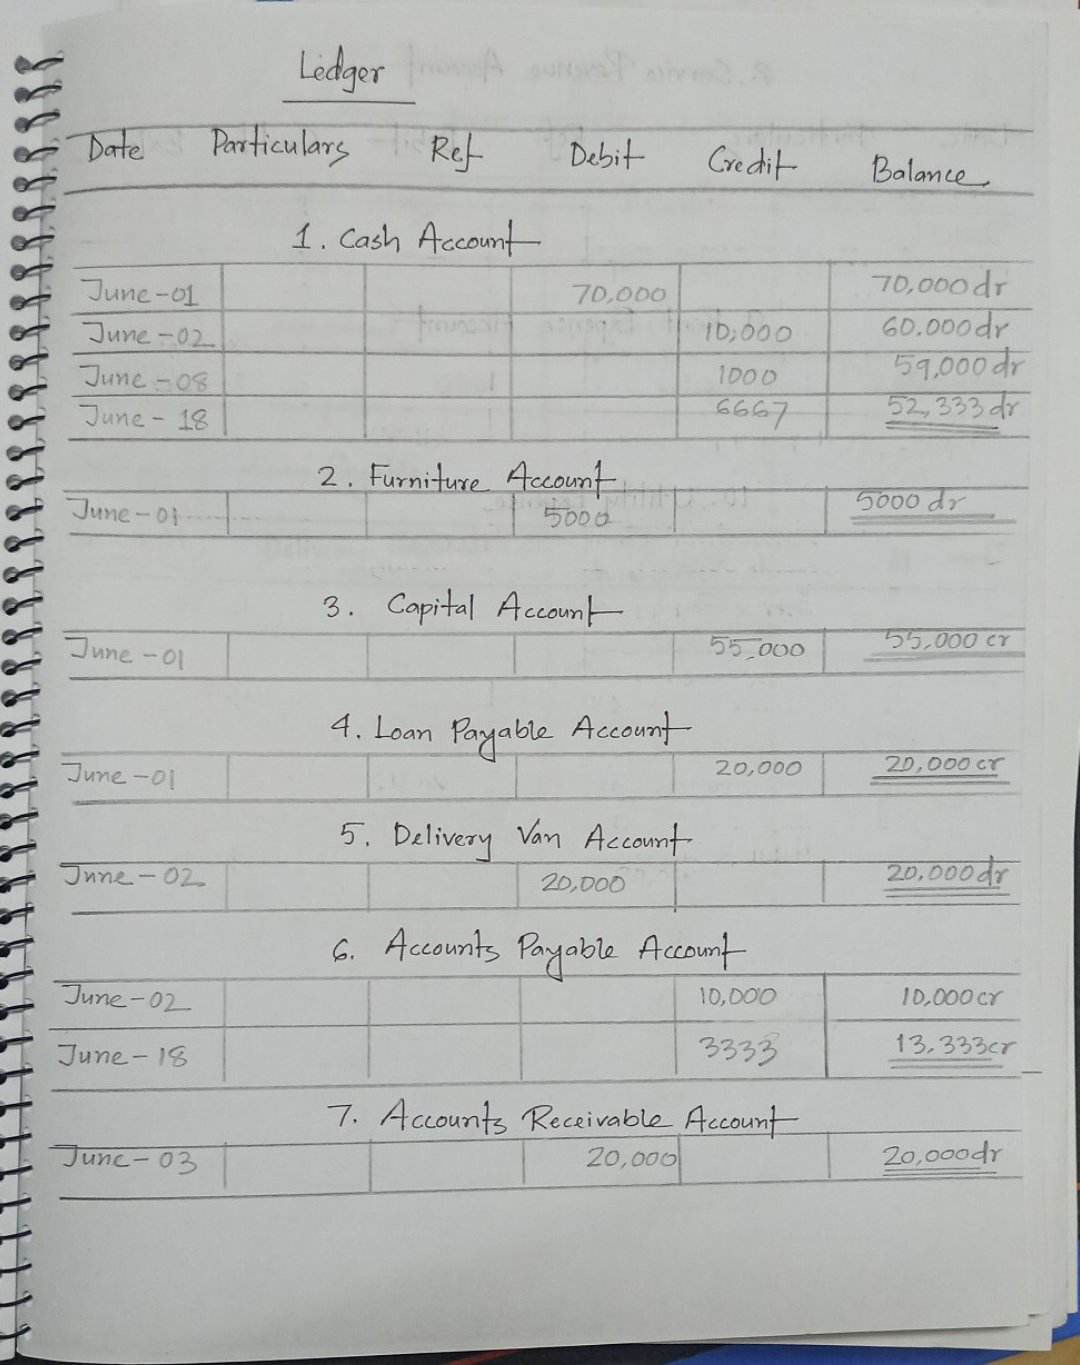 Ledger
Date Particulars Ref Debit Credit Balance
1. Cash Account
June-01 70,000 70,000 dr
June-02 10,000 60.000 dr
June-08 1000 59,000 dr
June-18 6667 52,333 dr
2. Furniture Account
June-01 5000 5000 dr
3. Capital Account
June-01 55,000 55,000 cr
4. Loan Payable Account
June-01 20,000 20,000 cr
5. Delivery Van Account
June-02 20,000 20,000 dr
6. Accounts Payable Account
June-02 10,000 10,000 cr
June-18 3333 13,333 cr
7. Accounts Receivable Account
June-03 20,000 20,000 dr